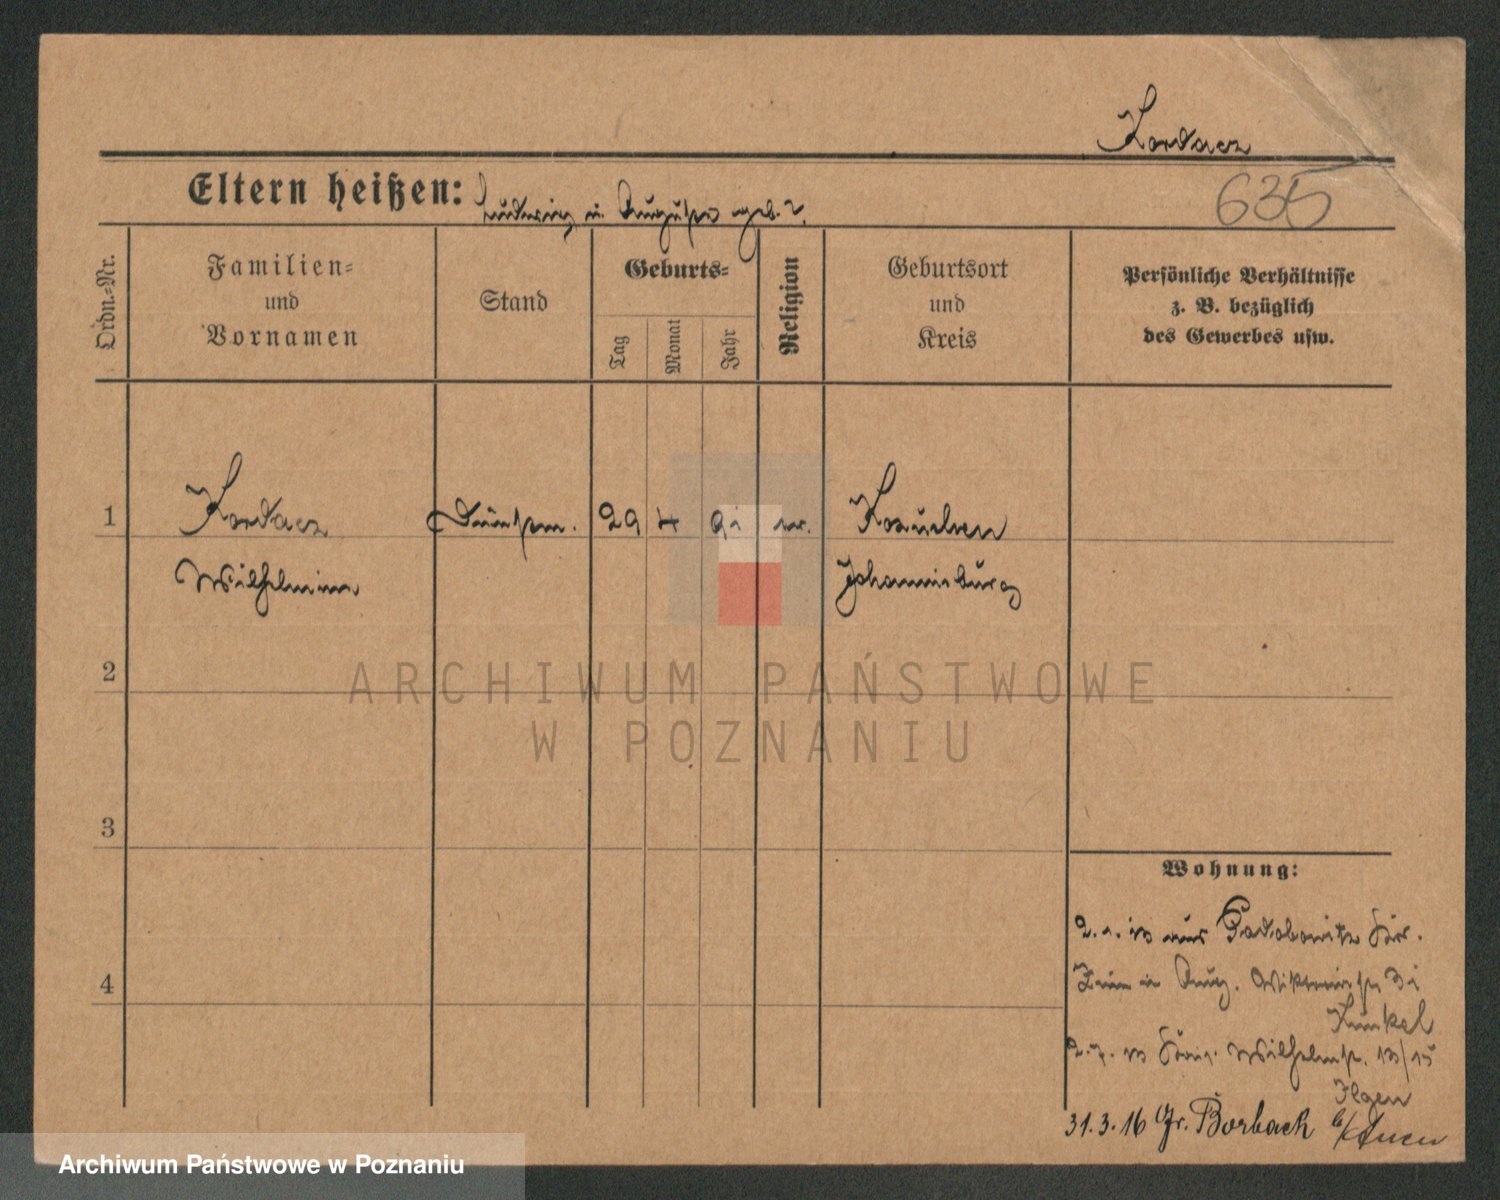 Kordacz
635
Eltern heißen: Ludwig u Auguste geb. ?
Ordn.=Nr.
Familien=
und
Vornamen
Stand
Geburts=
Tag
Monat
Jahr
Religion
Geburtsort
und
Kreis
Persönliche Verhältnisse
z. B. bezüglich
des Gewerbes usw.
1
Kordacz
Dienstm.
29
4
91
ev.
Kosuchen
Wilhelmine
Johannisburg
2
3
4
Wohnung:
2. 1. 13 aus
Viktoriastr 31
Kunkel
2. 7. 13 Wilhelmstr. 13/15
Ilgen
31. 3. 16 Gr. Borbach
ARCHIWUM PAŃSTWOWE
W POZNANIU
Archiwum Państwowe w Poznaniu